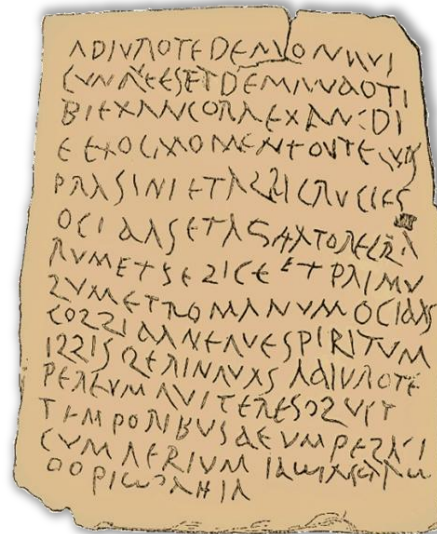 ADIVROTEDEMONQVI
CVNQVEESETDEMANDOTI
BIEXANCORAEXANCDI
EEXOCMOMENTOVTEQVOS
PRASINIETALBICRVCIES
OCIDASETAGITATORECLA
RVMETFELICEETPRIMV
LVMETROMANVMOCIDAS
COLLIDANEQVESPIRITVM
ILLISLERINQVASADIVROTE
PEREVMQVITERESOLVIT
TEMPORIBVSDEVMPELAGI
CVMAERIVMΙΑΩΙΑΣΔΑΩ
ΟΟΡΙΩΑΗΙΑ